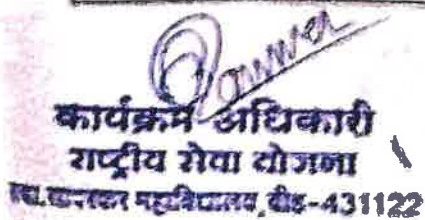 कार्यक्रम अधिकारी
राष्ट्रीय सेवा योजना
महाविद्यालय, बीड-431122